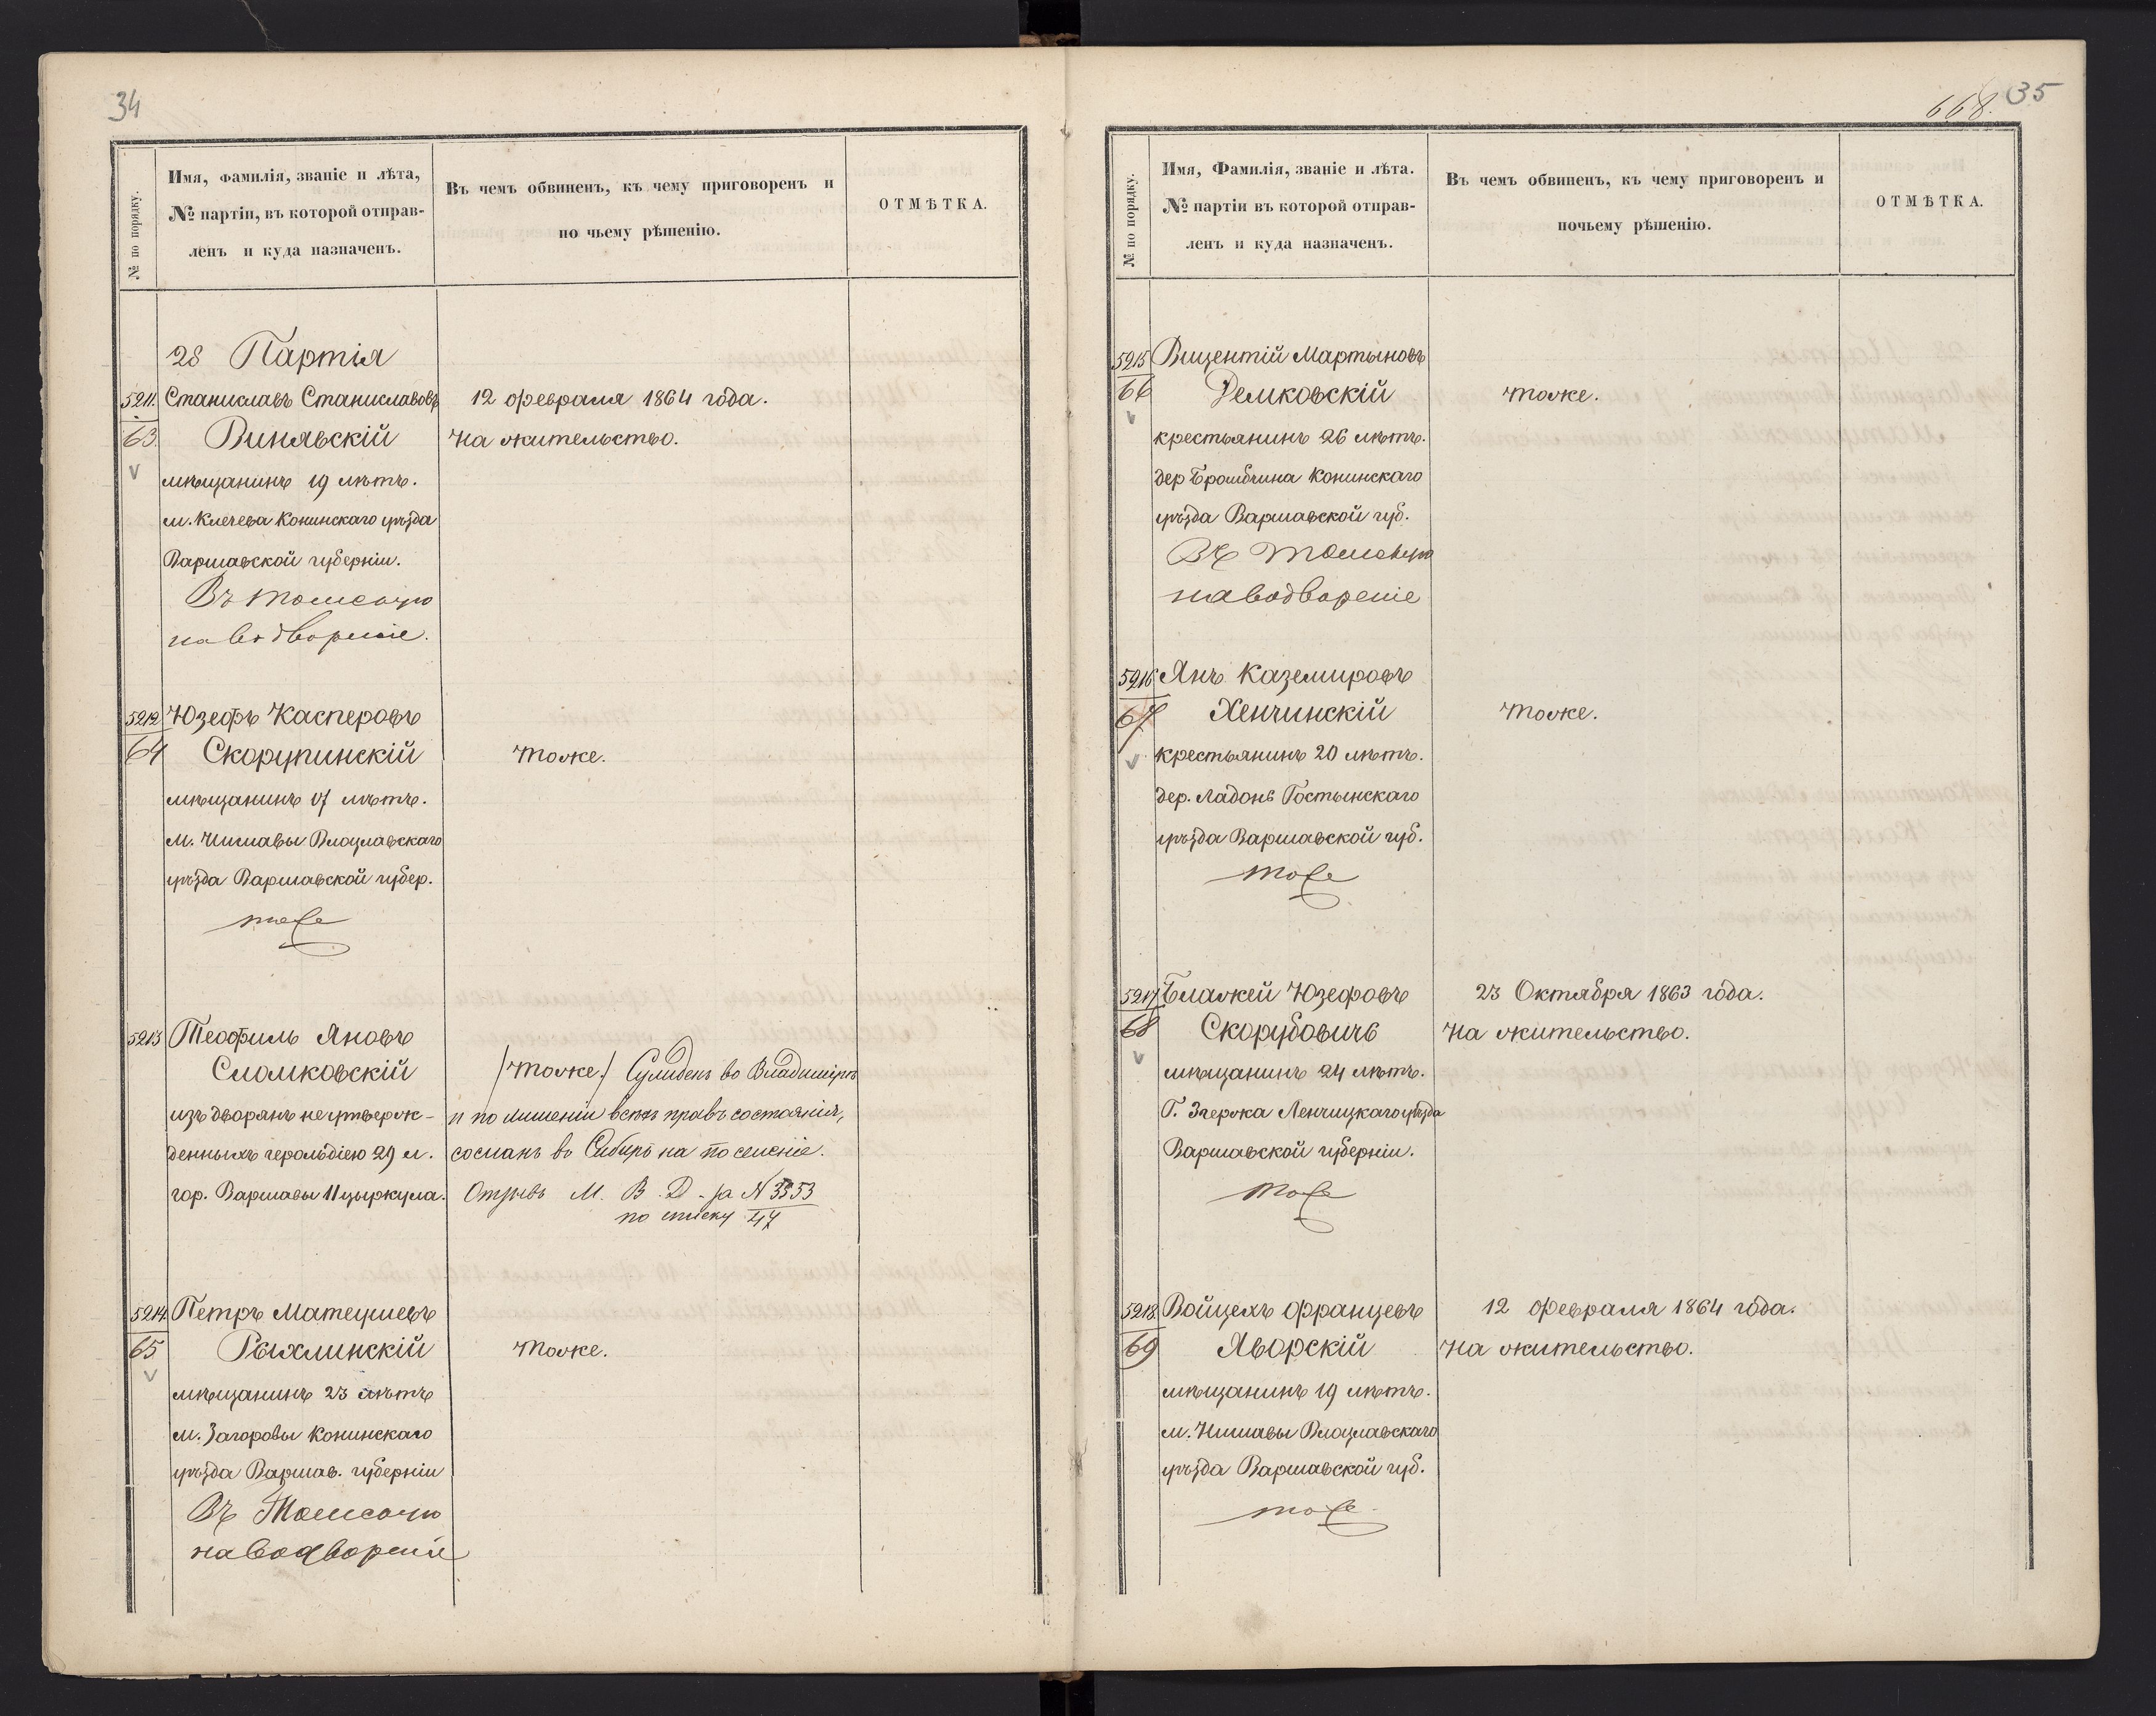 34
№ по порядку.
Имя, фамилія, званіе и лѣта,
№ партіи, въ которой отправ-
ленъ и куда назначенъ.
Въ чемъ обвиненъ, къ чему приговоренъ и
по чьему рѣшенію.
ОТМѢТКА.
28 Партія
5211. Станиславъ Станиславовъ
63. Винявскій
мѣщанинъ 19 лѣтъ.
м. Клечева Конинскаго уѣзда
Варшавской губерніи.
Въ Томскую
на водвореніе.
12 февраля 1864 года.
На жительство.
5212 Юзефъ Касперовъ
64 Скорупинскій
мѣщанинъ 17 лѣтъ.
м. Нишавы Влоцлавскаго
уѣзда Варшавской губер.
тоже
тоже.
5213 Теофиль Яновъ
Сломковскій
изъ дворянъ неутверж-
денныхъ герольдіею 29 л.
гор. Варшавы 11 цыркула.
/тоже./ Сужденъ во Владимірѣ
и по лишеніи всѣхъ правъ состоянія,
сосланъ въ Сибирь на поселеніе.
Отзывъ М. В. Д. за N 3553
по списку 47
5214. Петръ Матеушевъ
65 Рыхлинскій
мѣщанинъ 23 лѣтъ
м. Загоровы Конинскаго
уѣзда Варшав. губерніи
Въ Томскую
на водвореніе
тоже.
668. 35
№ по порядку.
Имя, Фамилія, званіе и лѣта.
№ партіи въ которой отправ-
ленъ и куда назначенъ.
Въ чемъ обвиненъ, къ чему приговоренъ и
почьему рѣшенію.
ОТМѢТКА.
5215 Вицентій Мартыновъ
66 Демковскій
крестьянинъ 26 лѣтъ.
дер Конинскаго
уѣзда Варшавской губ.
Въ Томскую
на водвореніе
тоже.
5216 Янъ Каземировъ
67 Хенчинскій
крестьянинъ 20 лѣтъ.
дер. Ладонь Гостынскаго
уѣзда Варшавской губ.
тоже
тоже.
5217 Блажей Юзефовъ
68 Скорубовичъ
мѣщанинъ 24 лѣтъ.
Г. Згержа Ленчицкаго уѣзда
Варшавской губерніи.
тоже
23 Октября 1863 года.
На жительство.
5218. Войцехъ Францевъ
69 Яворскій
мѣщанинъ 19 лѣтъ.
м. Нишавы Влоцлавскаго
уѣзда Варшавской губ.
тоже
12 февраля 1864 года.
На жительство.